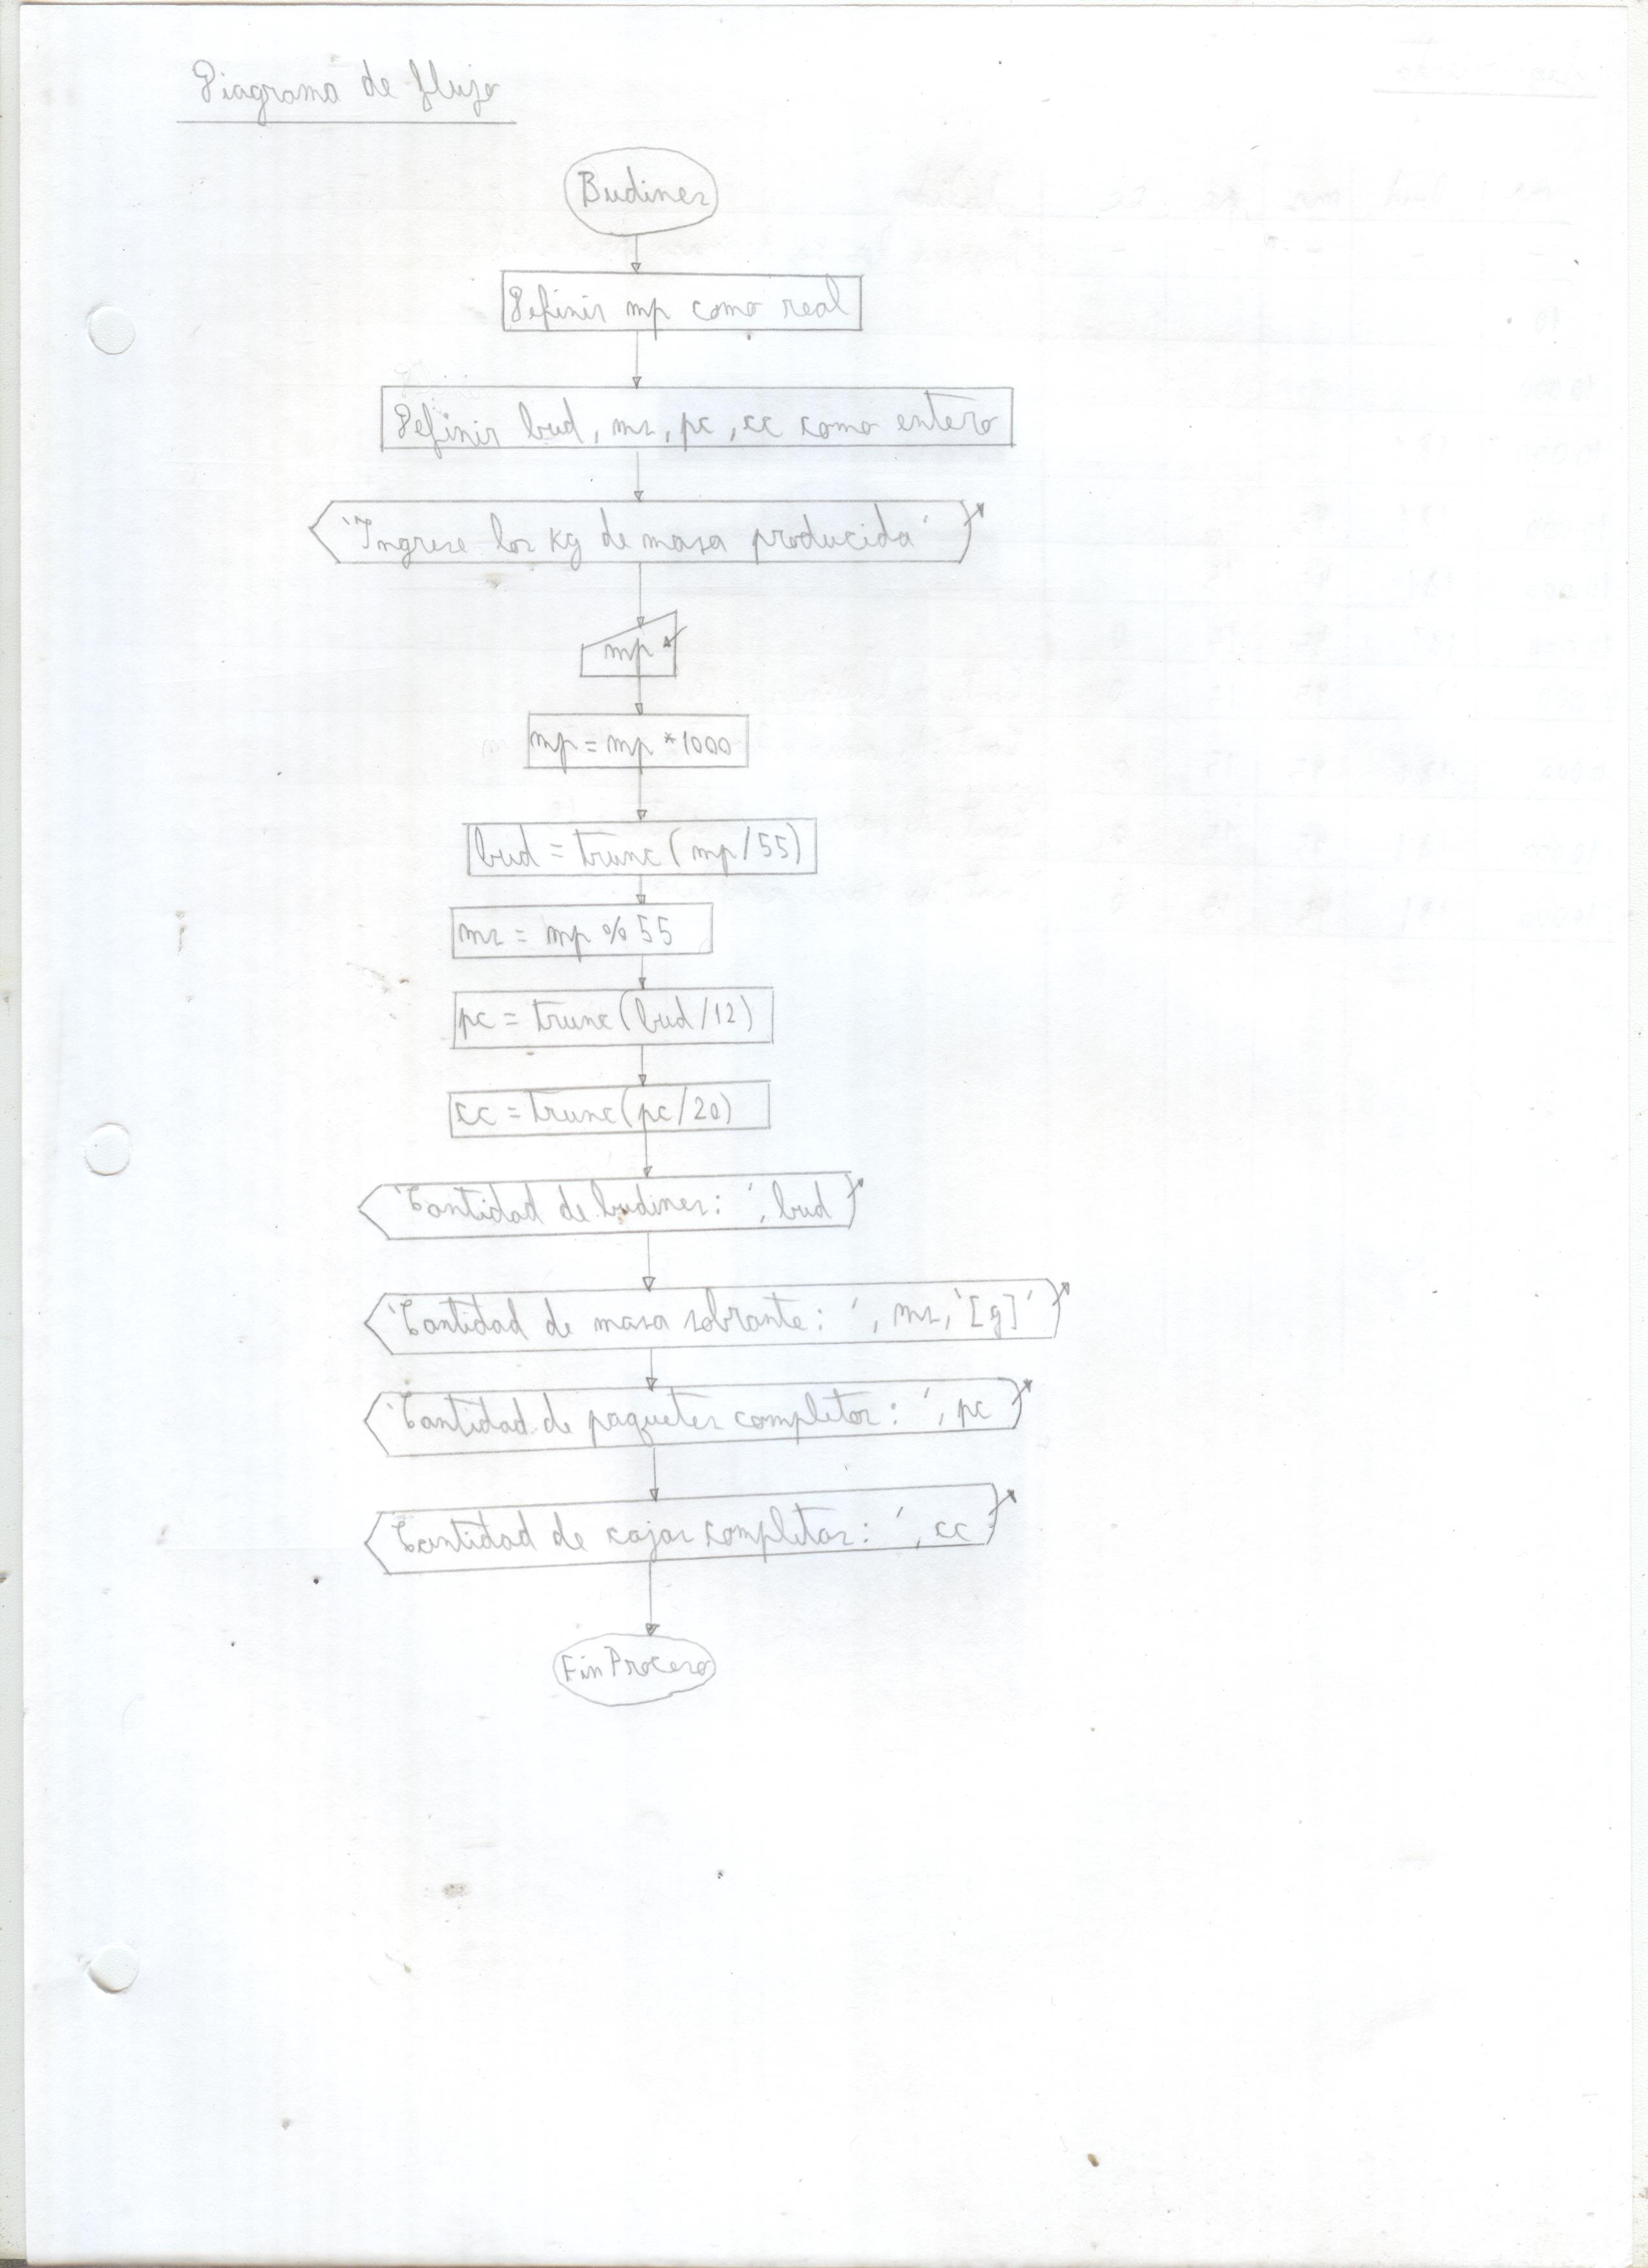 Diagrama de flujo
Budines
Definir mp como real
Definir bud, ms, pc, cc como entero
'Ingrese los kg de masa producida'
mp
mp = mp * 1000
bud = trunc(mp/55)
ms = mp % 55
pc = trunc(bud/12)
cc = trunc(pc/20)
'Cantidad de budines: ', bud
'Cantidad de masa sobrante: ', ms, '[g]'
'Cantidad de paquetes completos: ', pc
'Cantidad de cajas completas: ', cc
FinProceso